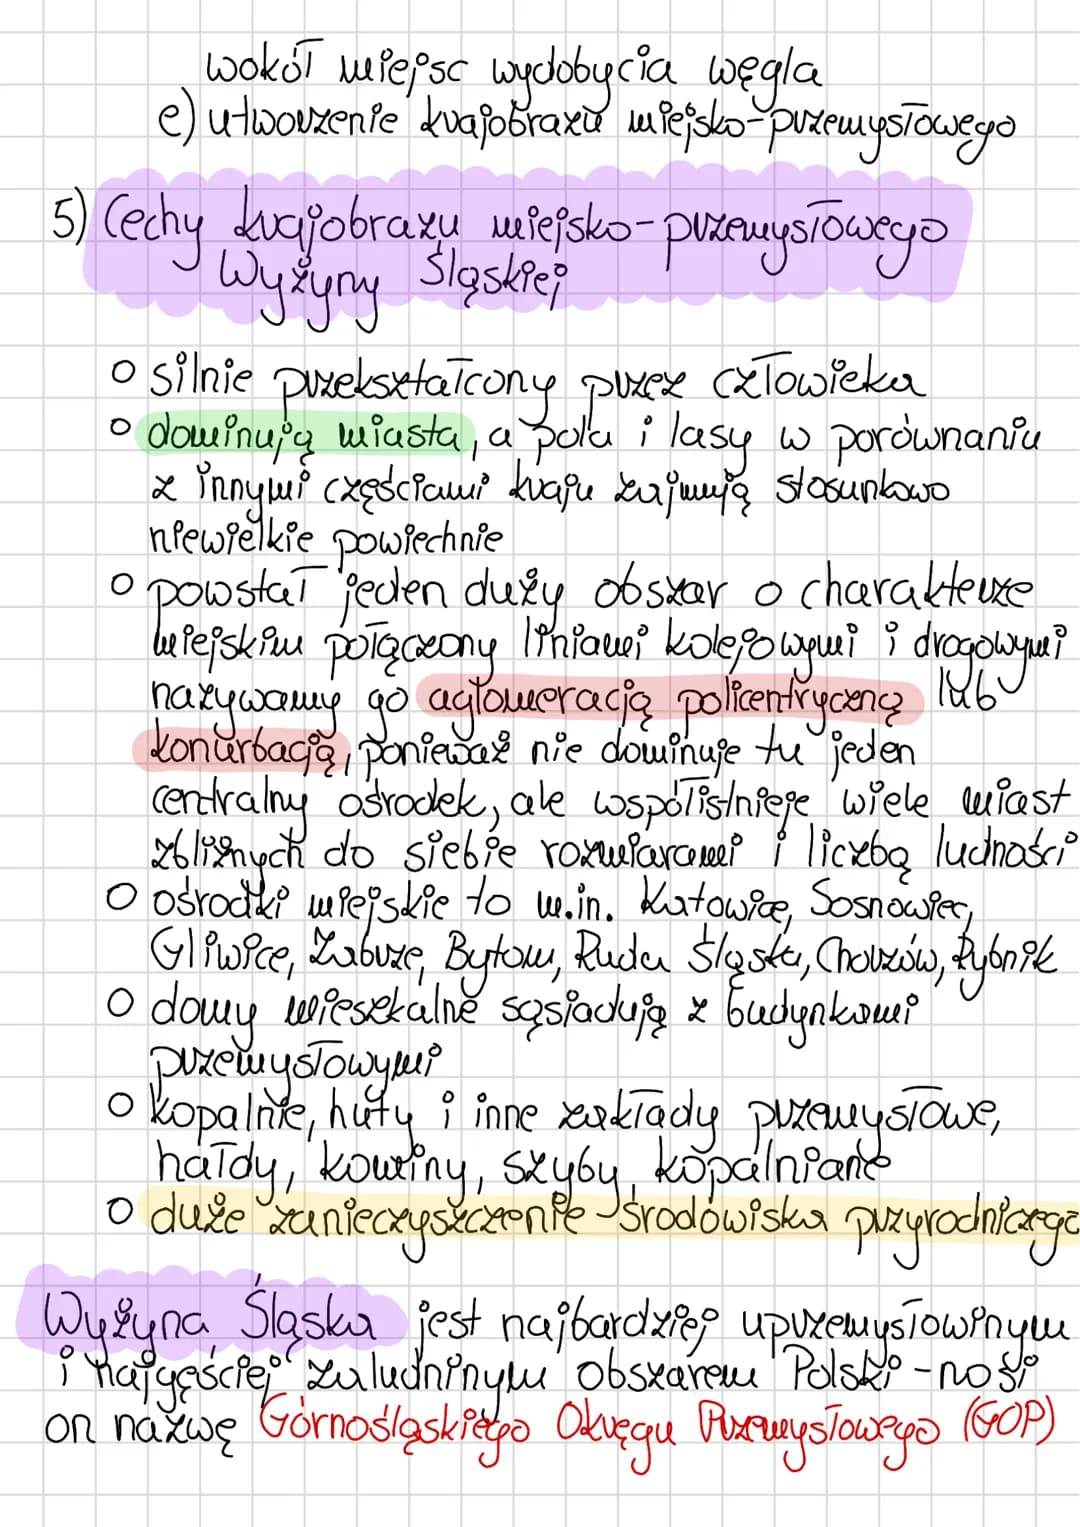 wokół miejsc wydobycia węgla
e) utworzenie krajobrazu miejsko-przemysłowego
5) Cechy krajobrazu miejsko-przemysłowego
Wyżyny Śląskiej
o silnie przekształcony przez człowieka
o dominują miasta, a pola i lasy w porównaniu
z innymi częściami kraju zajmują stosunkowo
niewielkie powiechnie
o powstał jeden duży obszar o charakterze
miejskim połączony liniami kolejowymi i drogowymi
nazywamy go aglomeracją policentryczną lub
konurbacją, ponieważ nie dominuje tu jeden
centralny ośrodek, ale współistnieje wiele miast
zbliżnych do siebie rozmiarami i liczbą ludności
o ośrodki miejskie to m.in. Katowice, Sosnowiec,
Gliwice, Zabrze, Bytom, Ruda Śląska, Chorzów, Rybnik
o domy miesekalne sąsiadują z budynkami
przemysłowymi
o kopalnie, huty i inne zakłady przemysłowe,
hałdy, kominy, szyby kopalniane
o duże zanieczyszczenie środowiska przyrodniczego
Wyżyna Śląska jest najbardziej uprzemysłowinym
i najgęściej zaludninym obszarem Polski - nosi
on nazwę Górnośląskiego Okręgu Przemysłowego (GOP)